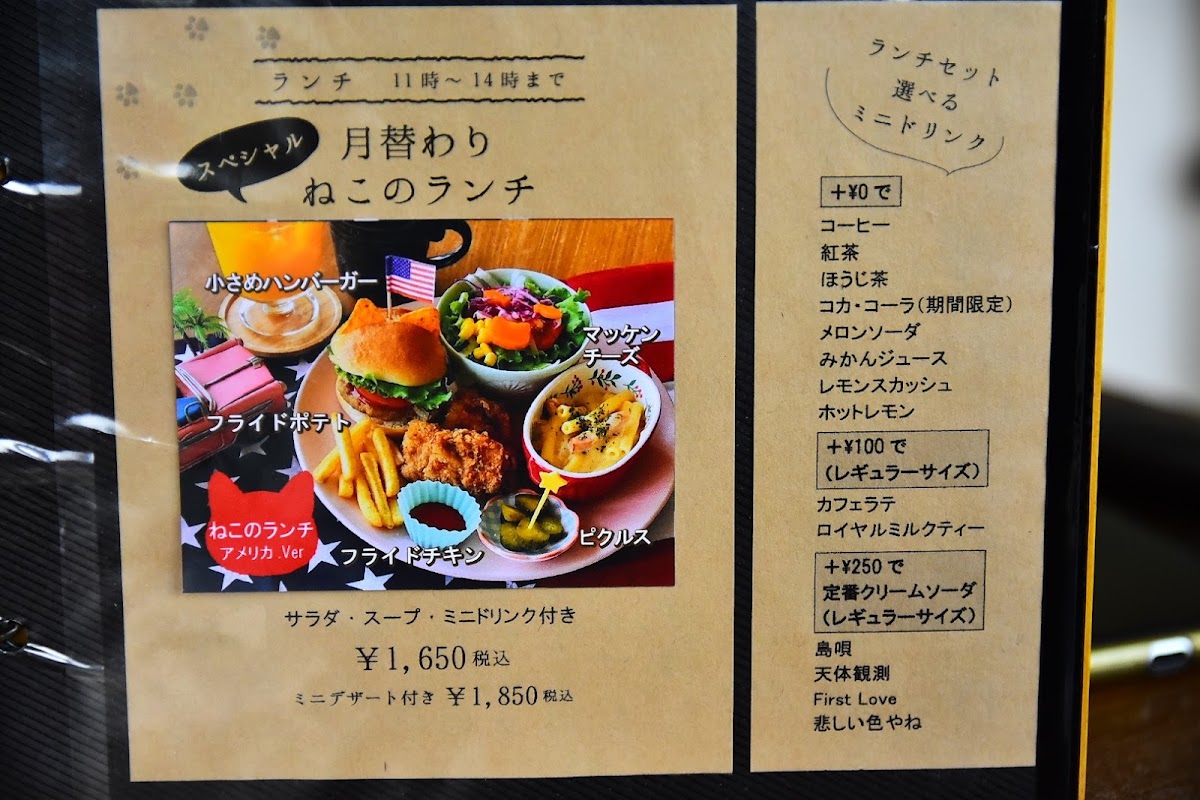 ランチ 11時～14時まで
スペシャル
月替わり
ねこのランチ
小さめハンバーガー
マッケン
チーズ
フライドポテト
ねこのランチ
アメリカ.Ver
フライドチキン
ピクルス
サラダ・スープ・ミニドリンク付き
￥1,650税込
ミニデザート付き ￥1,850税込
ランチセット
選べる
ミニドリンク
＋¥0で
コーヒー
紅茶
ほうじ茶
コカ・コーラ（期間限定）
メロンソーダ
みかんジュース
レモンスカッシュ
ホットレモン
＋¥100で
（レギュラーサイズ）
カフェラテ
ロイヤルミルクティー
＋¥250で
定番クリームソーダ
（レギュラーサイズ）
島唄
天体観測
First Love
悲しい色やね